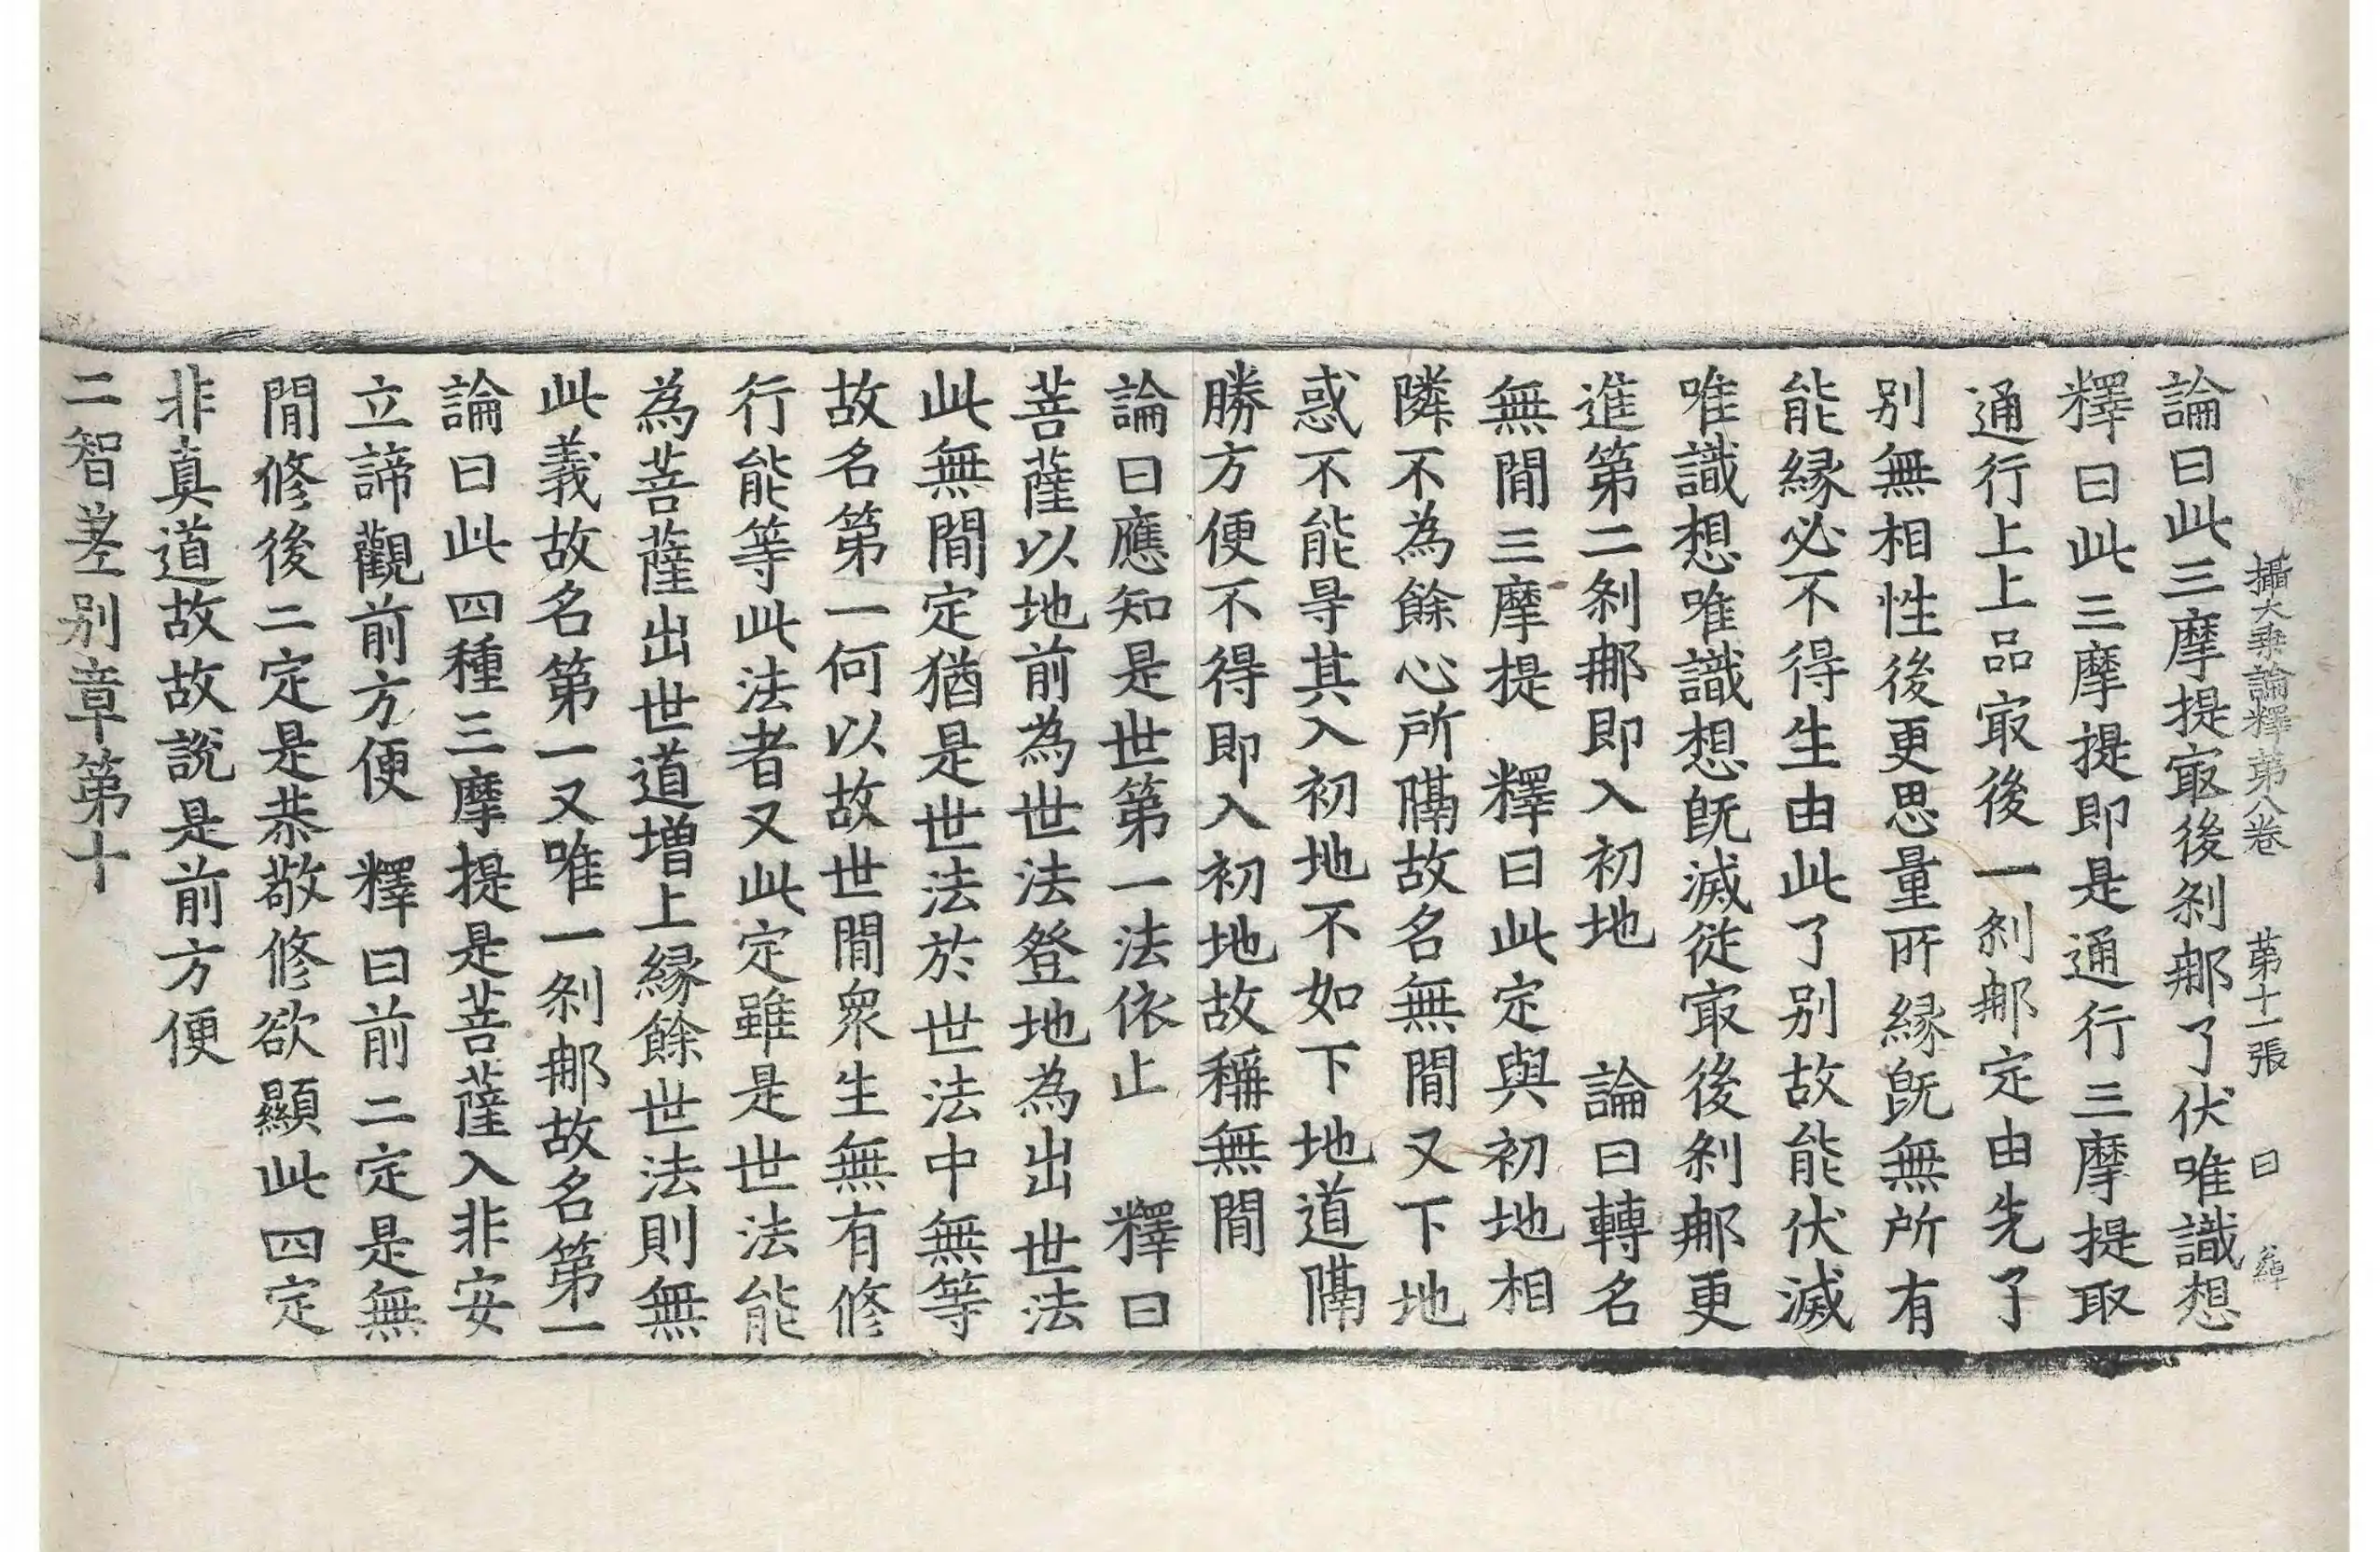 攝大乘論釋第八卷 第十一張 曰
論曰此三摩提㝡後刹那了伏唯識想
釋曰此三摩提即是通行三摩提取
通行上上品㝡後一刹那定由先了
别無相性後更思量所縁既無所有
能縁必不得生由此了别故能伏滅
唯識想唯識想既滅從㝡後刹那更
進第二刹那即入初地 論曰轉名
無間三摩提 釋曰此定與初地相
隣不為餘心所隔故名無間又下地
惑不能㝵其入初地不如下地道隔
勝方便不得即入初地故稱無間
論曰應知是世第一法依止 釋曰
菩薩以地前為世法登地為出世法
此無間定猶是世法於世法中無等
故名第一何以故世間衆生無有修
行能等此法者又此定雖是世法能
為菩薩出世道增上縁餘世法則無
此義故名第一又唯一刹那故名第一
論曰此四種三摩提是菩薩入非安
立諦觀前方便 釋曰前二定是無
間修後二定是恭敬修欲顯此四定
非真道故故説是前方便
二智差别章第十